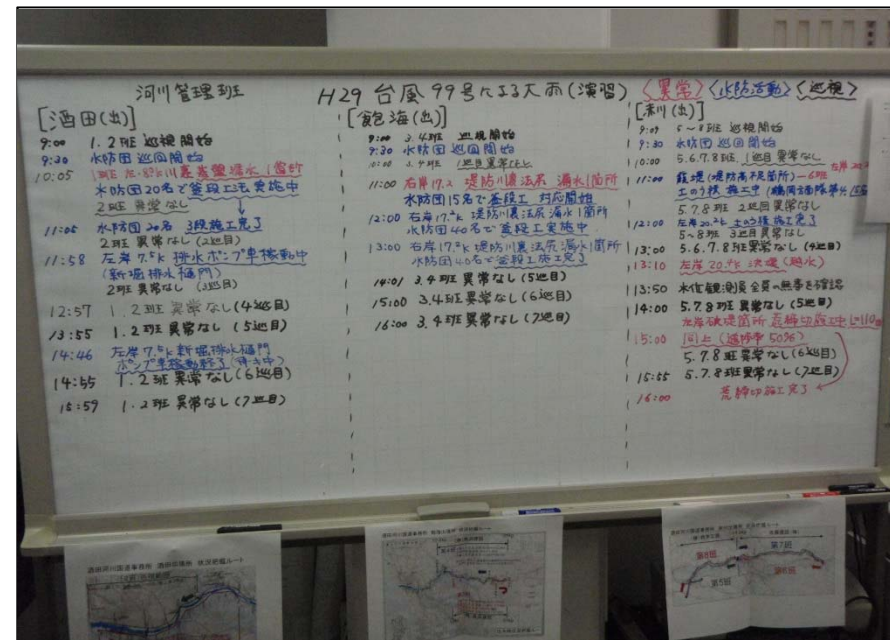 河川管理班
H29 台風99号による大雨(演習)
<異常> <水防活動> <巡視>
[酒田(出)]
9:00 1.2班 巡視開始
9:30 水防団 巡回開始
10:05 1班 左 川裏基盤漏水1箇所
水防団20名で釜段工法実施中
2班 異常なし
11:05 水防団20名 3段施工完了
2班 異常なし(2巡目)
11:58 左岸7.5k 排水ポンプ車稼動中
(新堀排水樋門)
2班 異常なし (3巡目)
12:57 1.2班 異常なし(4巡目)
13:55 1.2班 異常なし (5巡目)
14:46 左岸7.5k新堀排水樋門
ポンプ車稼動終了(待き中)
14:55 1.2班 異常なし(6巡目)
15:59 1.2班 異常なし(7巡目)
[飽海(出)]
9:00 3.4班 巡視開始
9:30 水防団 巡回開始
10:00 3.4班 1巡目異常なし
11:00 右岸17.2 堤防川裏法尻 漏水1箇所
水防団15名で釜段工 対応開始
12:00 右岸17.2k 堤防川裏法尻漏水1箇所
水防団40名で釜段工実施中
13:00 右岸17.2k 堤防川裏法尻漏水1箇所
水防団40名で釜段工施工完了
14:01 3.4班 異常なし(5巡目)
15:00 3.4班異常なし(6巡目)
16:00 3.4班 異常なし(7巡目)
[赤川(出)]
9:09 5~8班 巡視開始
9:30 水防団 巡回開始
10:00 5.6.7.8班 1巡目 異常なし
11:00 越堤(堤防高不足箇所)-6班 左岸
土のう積 施工中
5.7.8班 2巡回 異常なし
12:00 左岸20.2k 土のう積施工完了
5~8班 3巡目異常なし
13:00 5.6.7.8班異常なし(4巡目)
13:10 左岸20.2k 決壊(越水)
13:50 水位観測員全員の無事を確認
14:00 5.7.8班 異常なし(5巡目)
左岸破堤箇所 荒締切施工中 L=110
15:00 同上(進捗率50%)
5.7.8班 異常なし(6巡目)
15:55 5.7.8班異常なし(7巡目)
16:00 荒締切施工完了
酒田河川国道事務所 酒田出張所 状況把握ルート
酒田河川国道事務所 飽海出張所 状況把握ルート
第8班
第7班
第5班
第6班